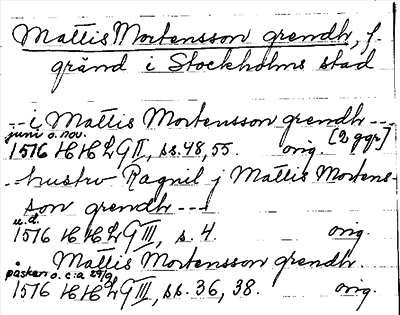 Mattis Mortensson grendh, f.
gränd i Stockholms stad
-- i Mattis Mortensson grendh ---
juni o. nov. [2 ggr]
1516 HHLG II, ss. 48, 55. orig.
-- hustrv Ragnil j Mattis Mortens-
son grendh ---
u.d.
1516 HHLG III, s. 4. orig.
Mattis Mortensson grendh.
påsken o. c:a 29/9
1516 HHLG III, ss. 36, 38. orig.